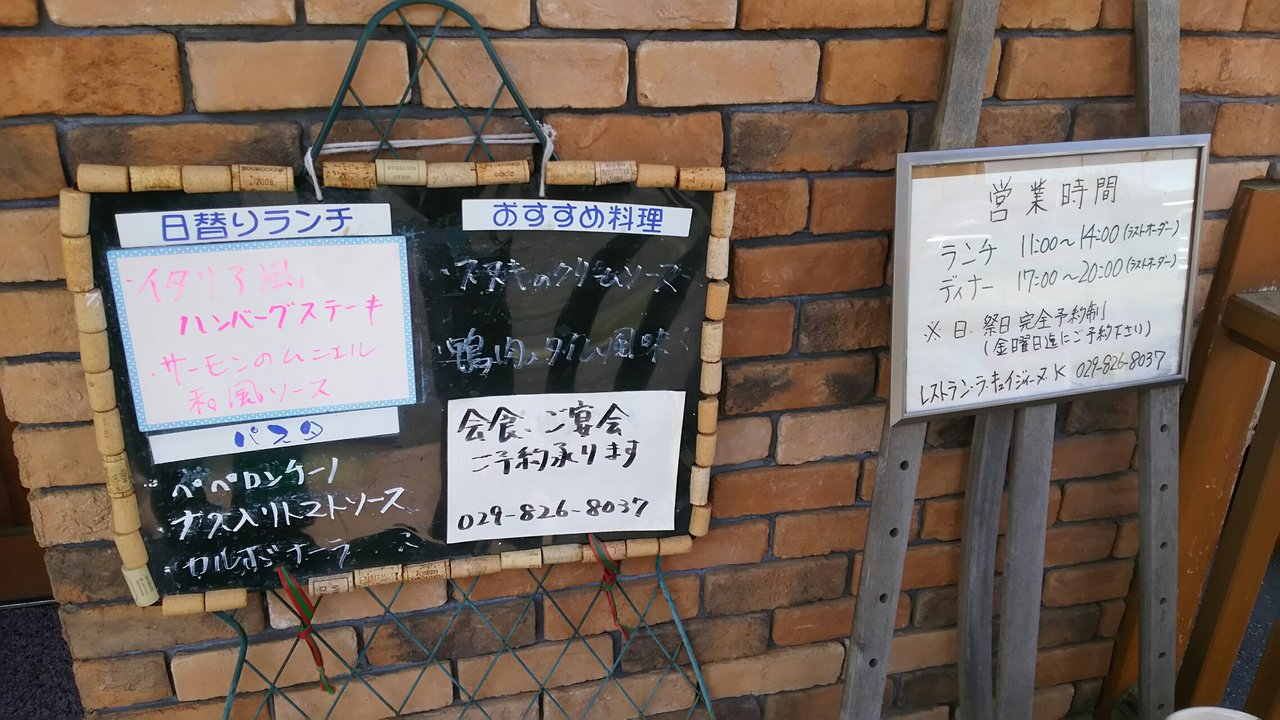 日替りランチ
・イタリア風
ハンバーグステーキ
・サーモンのムニエル
和風ソース
パスタ
・ペペロンチーノ
・ナス入りトマトソース
・カルボナーラ
おすすめ料理
・スズキのクリームソース
・鴨肉のタイム風味
会食、ご宴会
ご予約承ります
029-826-8037
営業時間
ランチ 11:00～14:00(ラストオーダー)
ディナー 17:00～20:00(ラストオーダー)
※日、祭日 完全予約制
(金曜日迄にご予約下さい)
レストラン・ラ・キュイジィーヌ K 029-826-8037